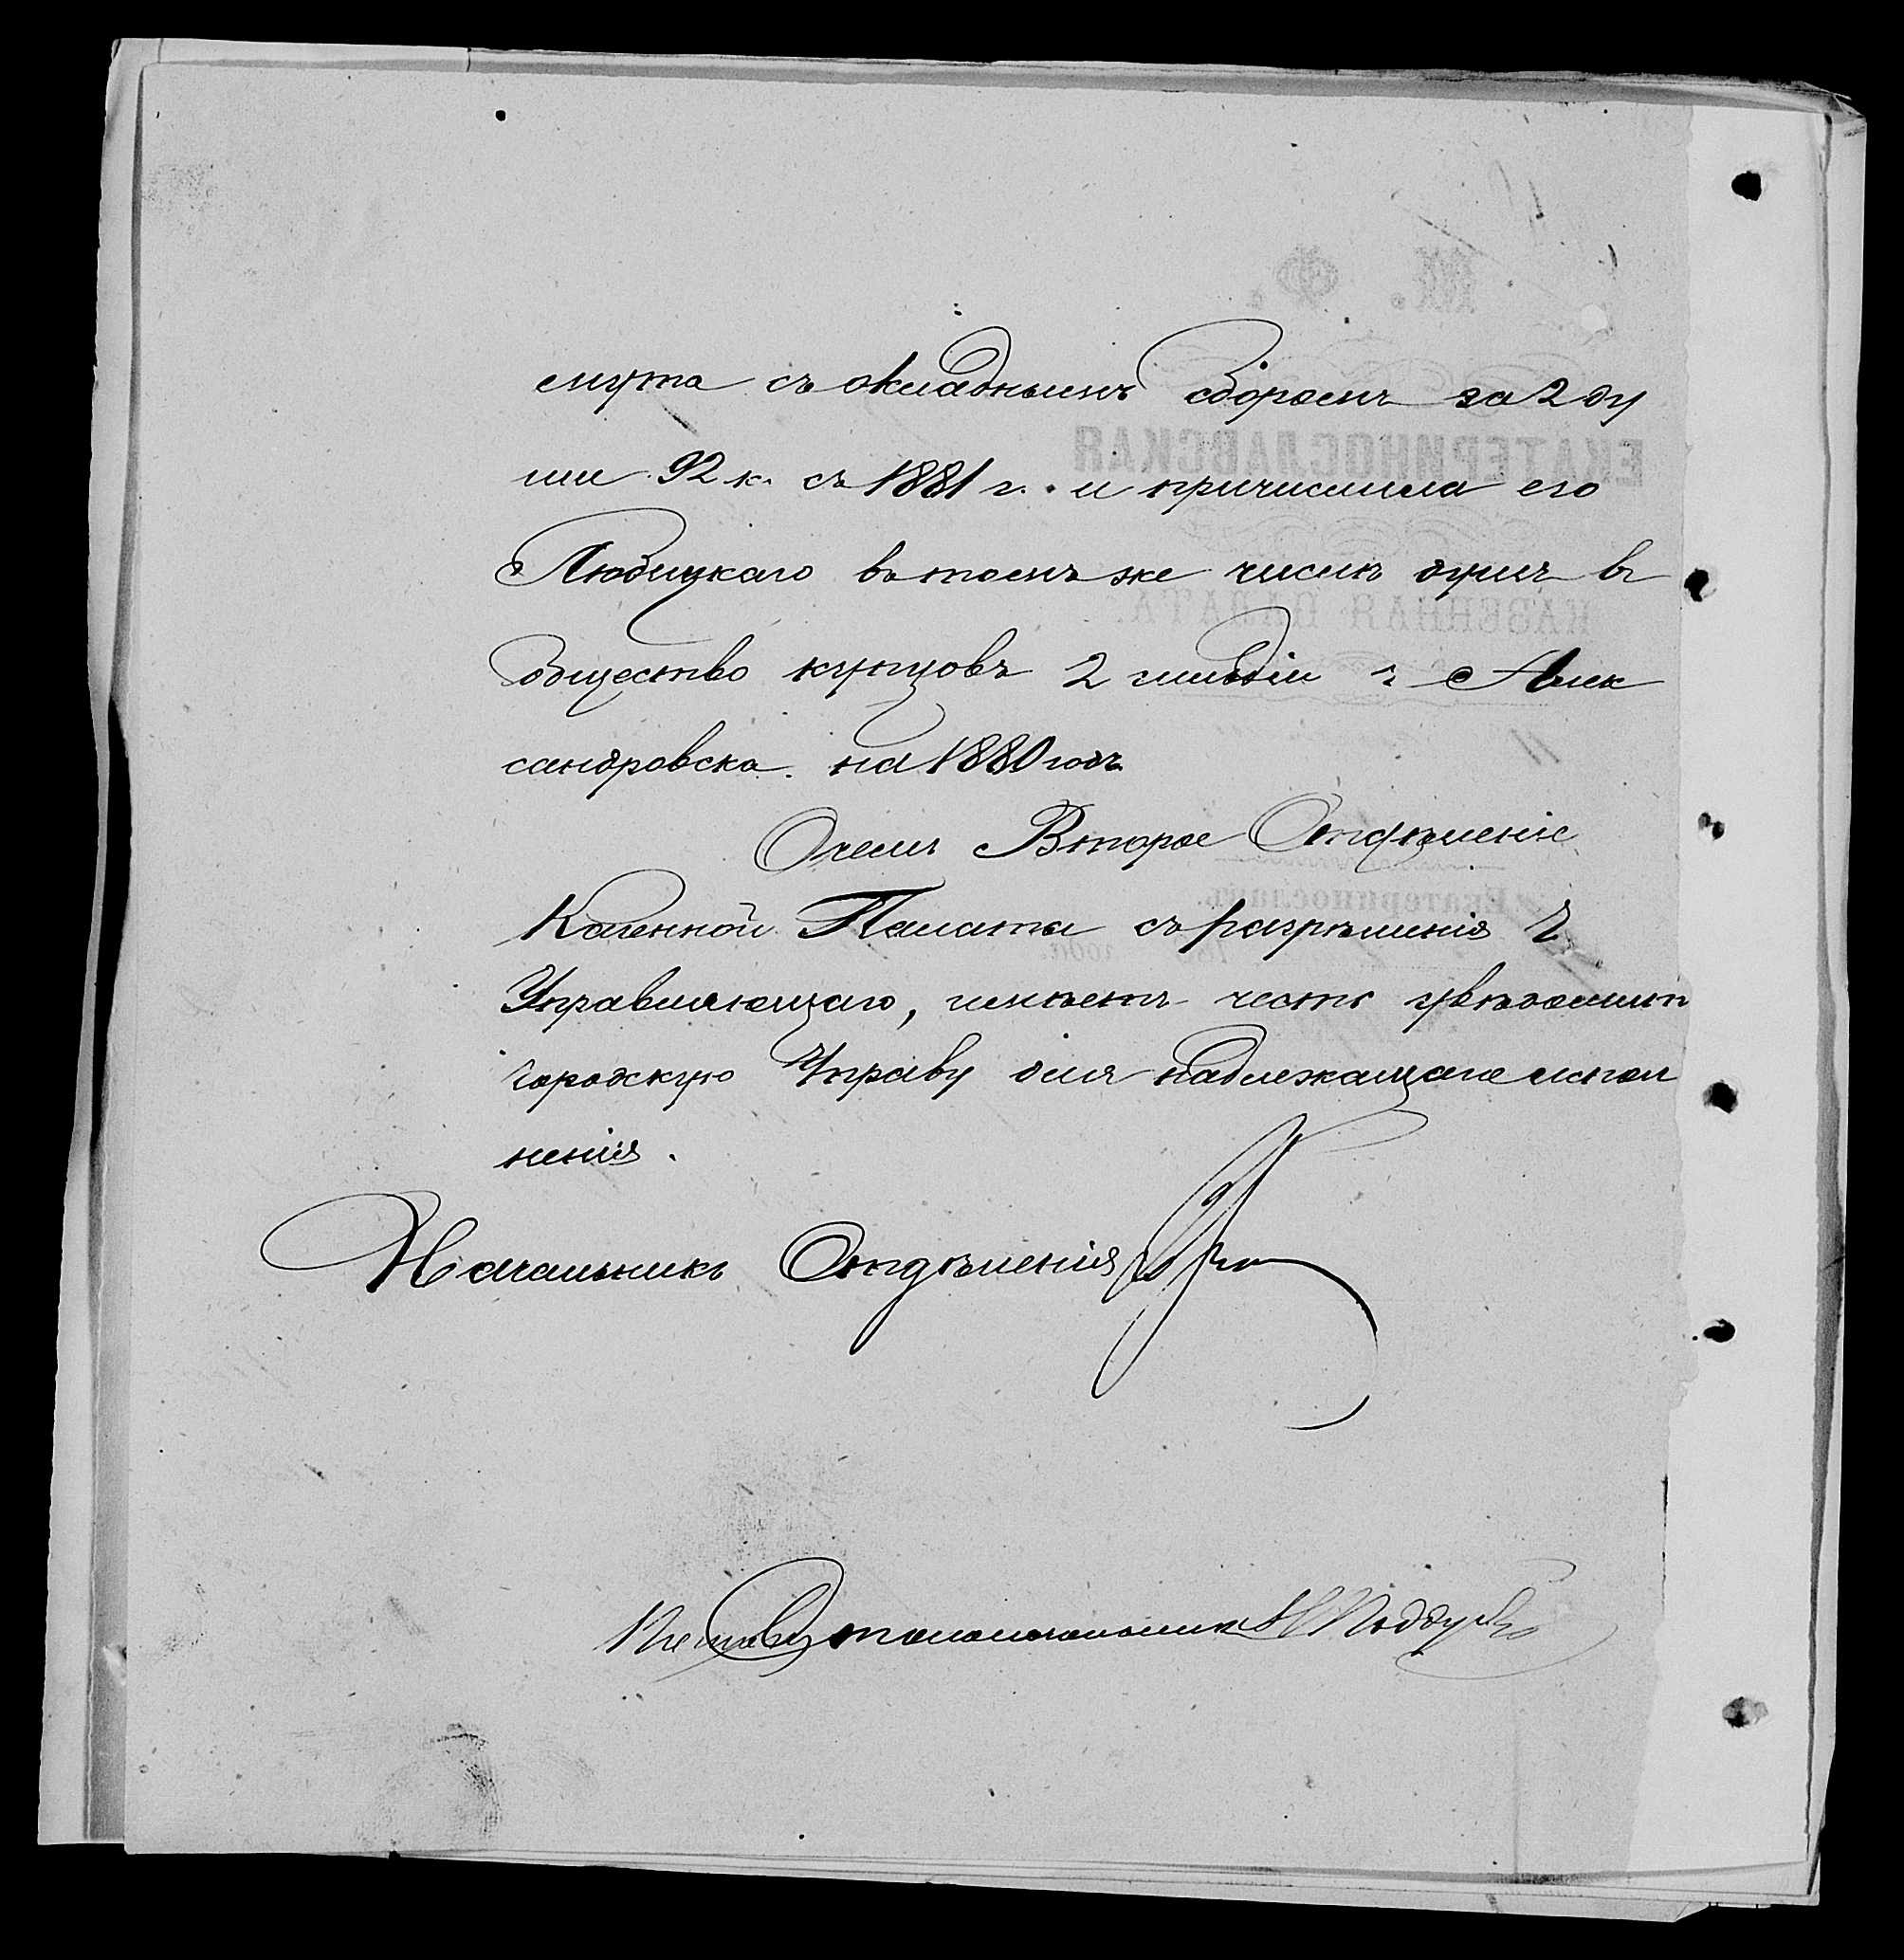 съ окладнымъ сборомъ за 2 ду
ши 92 к. съ 1881 г. и причислила его
Любицкаго въ томъ же числѣ душъ въ
общество купцовъ 2 гильдіи г. Алек
сандровска на 1880 годъ.
О чемъ Второе Отдѣленіе
Казенной Палаты съ разрѣшенія Г.
Управляющаго, имѣетъ честь увѣдомить
Городскую Управу для надлежащаго испол
ненія.
Начальникъ Отдѣленія
Столоначальника
М. Ф.
ЕКАТЕРИНОСЛАВСКАЯ
КАЗЕННАЯ ПАЛАТА.
Екатеринославъ.
года.